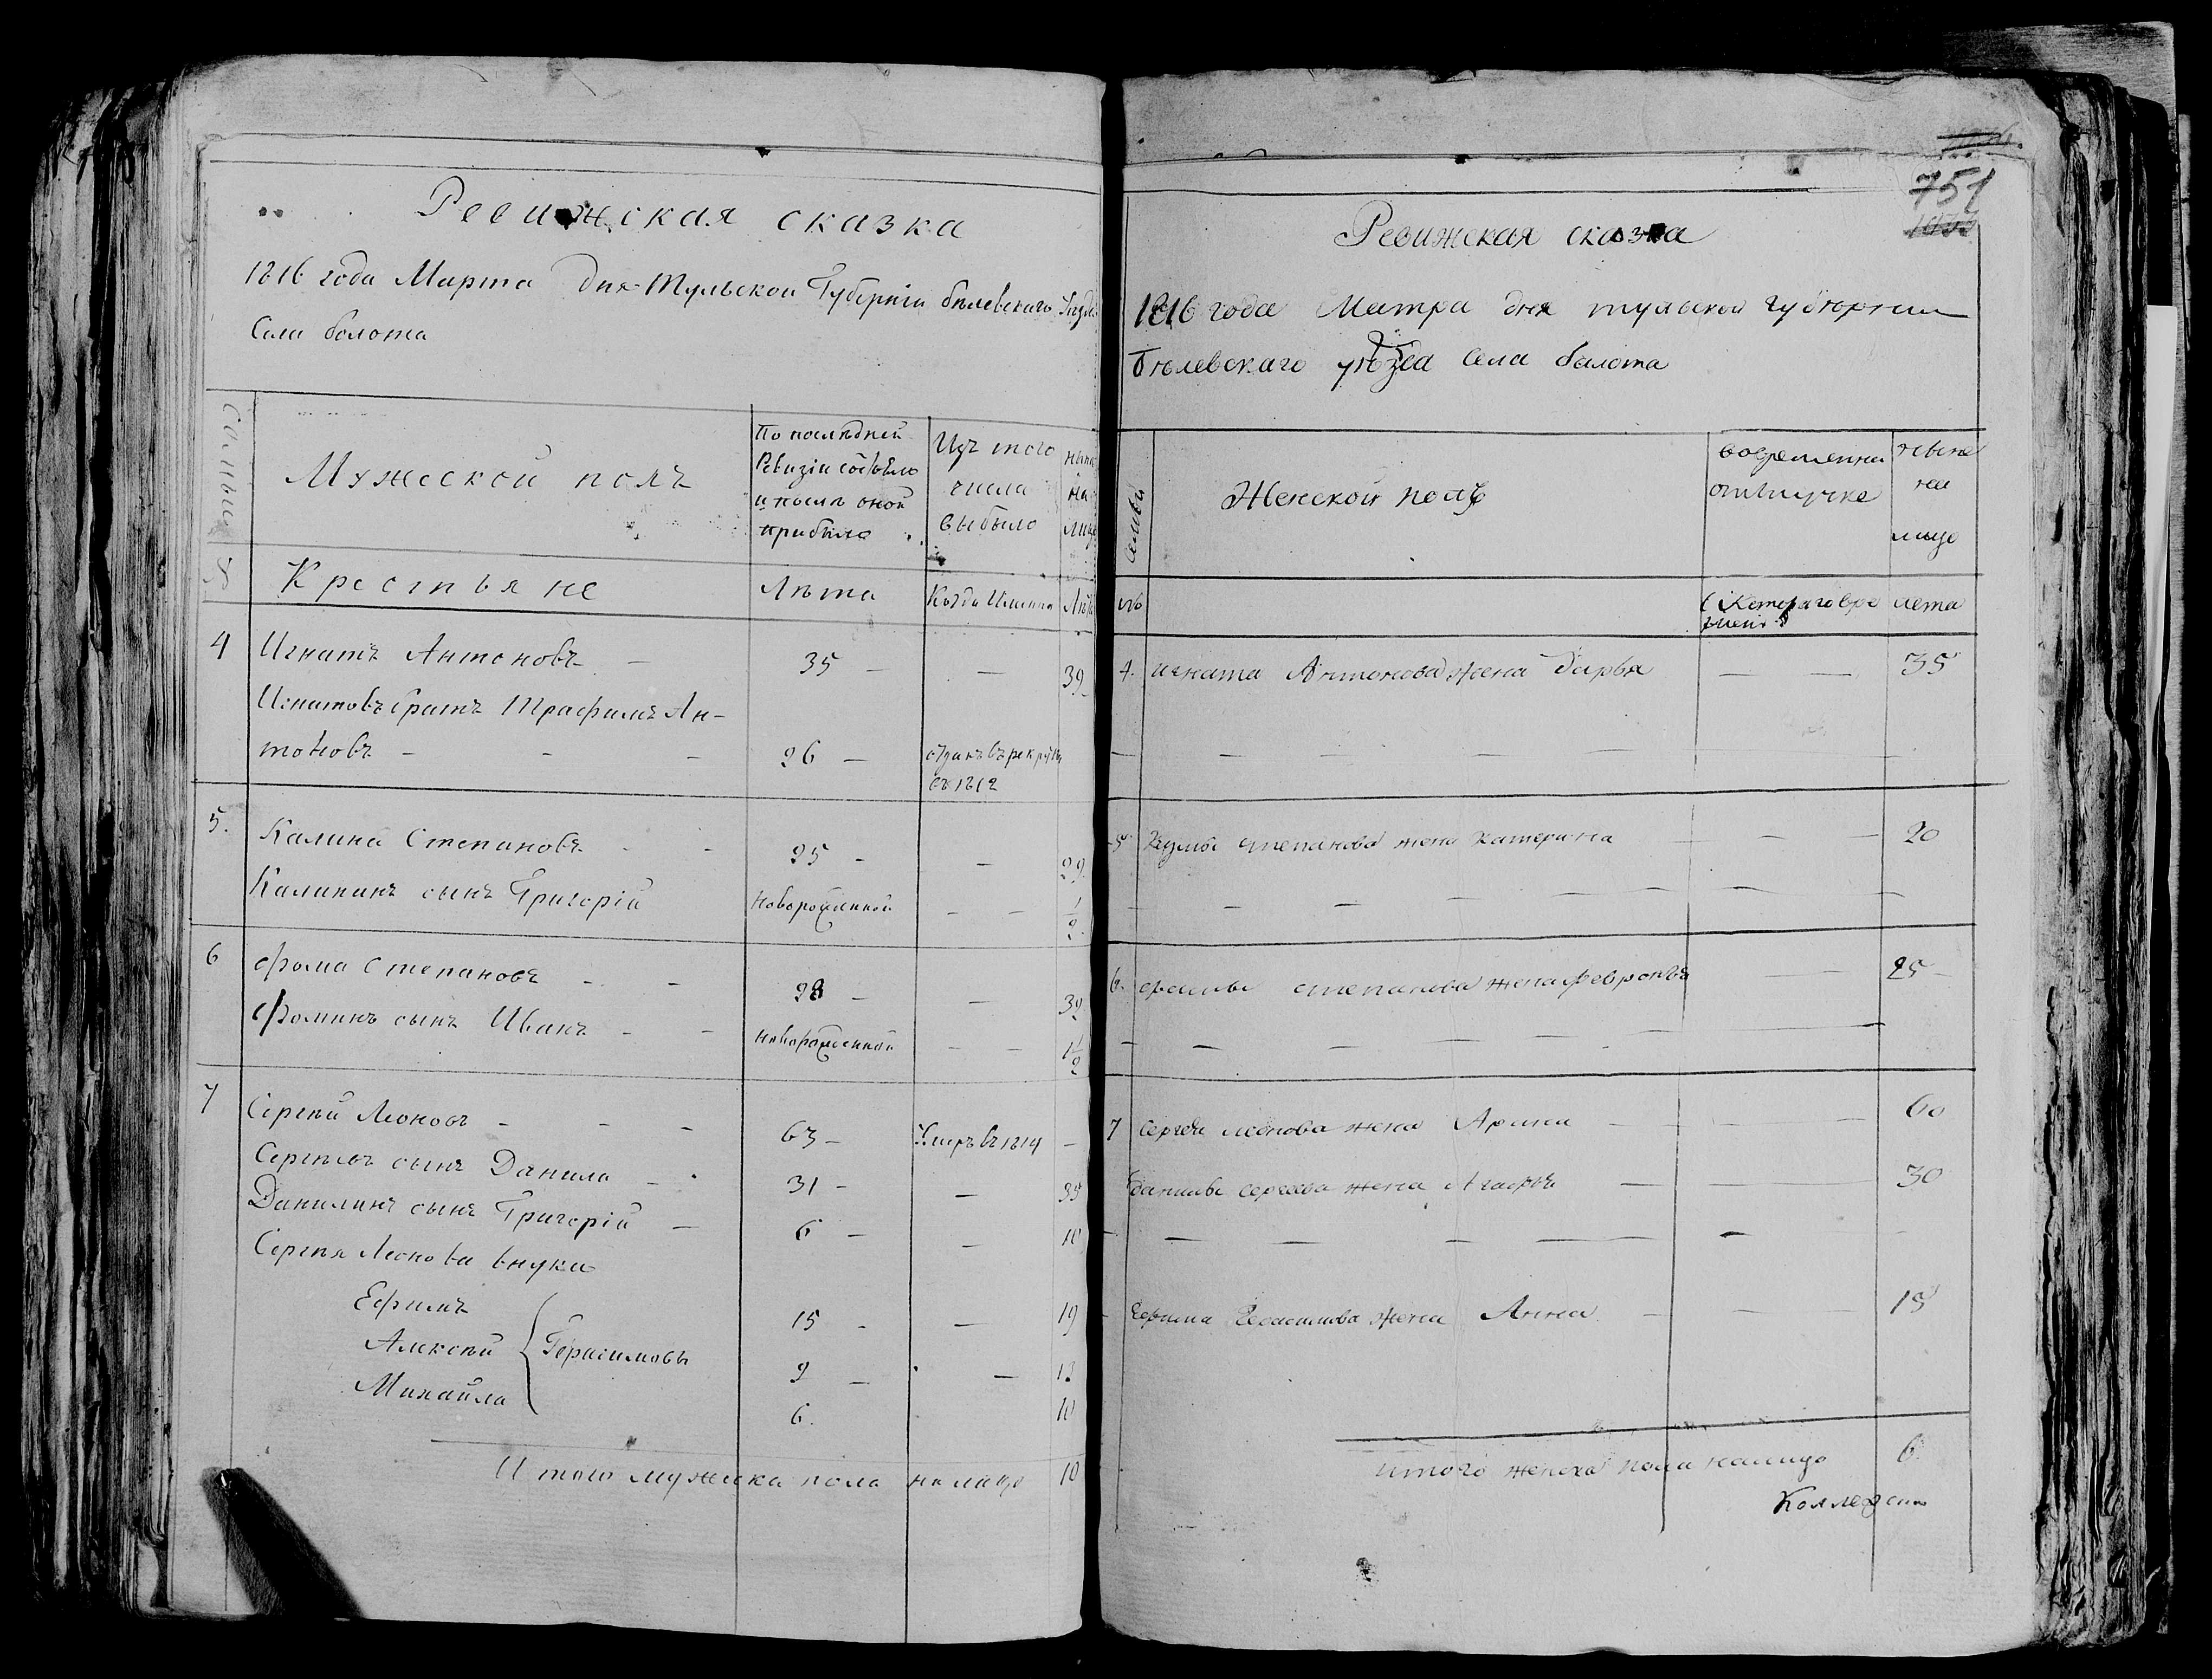 Ревижская сказка
1816 года Марта дня Тульской Губерніи бѣлевскаго Уѣзда
Села болота
Мужеской полъ
По послѣдней
Ревизіи состояло
и послѣ оной
прибыло
Изъ того
числа
выбыло
ныне
на
лицо
Крестьяне
Лѣта
Когда имянно
Лѣта
4 Игнатъ Антоновъ - 35 - - 39
Игнатовъ братъ Трафимъ Ан-
тоновъ - - - 26 - отданъ въ рекруты
въ 1812
5. Калина Степановъ - - 25 - - 29
Калининъ сынъ Григорій новорожденной - - 1/2
6 фома Степановъ - - 28 - - 32
фоминъ сынъ Иванъ - - новорожденной - - 1 1/2
7 Сергѣй Леоновъ - - - 63 - Умръ въ 1814 -
Сергѣевъ сынъ Данила - - 31 - - 35
Данилинъ сынъ Григорій - 6 - - 10
Сергѣя Леонова внуки
Ефимъ 15 - - 19
Алексѣй Герасимовы 9 - - 13
Михайла 6. 10
Итого мужеска пола на лицо 10
751
Ревижская сказка
1816 года Матра дня тульской губернии
Бѣлевскаго уѣзда села балота
семьи
Женской полъ
вовременна
отлучке
ныне
на
лицо
№
С Котораго вре
мени
лета
4. игната Антонова жена Дарья — — 35
5 Кулмы степанова жена катерина — — 20
6. фомы степанова жена февронья — — 25
7 сергея леонова жена Арина — — — 60
данилы сергеева жена Агафья — — — 30
ефима Герасимова жена Анна — — 15
итого женска пола налицо 6